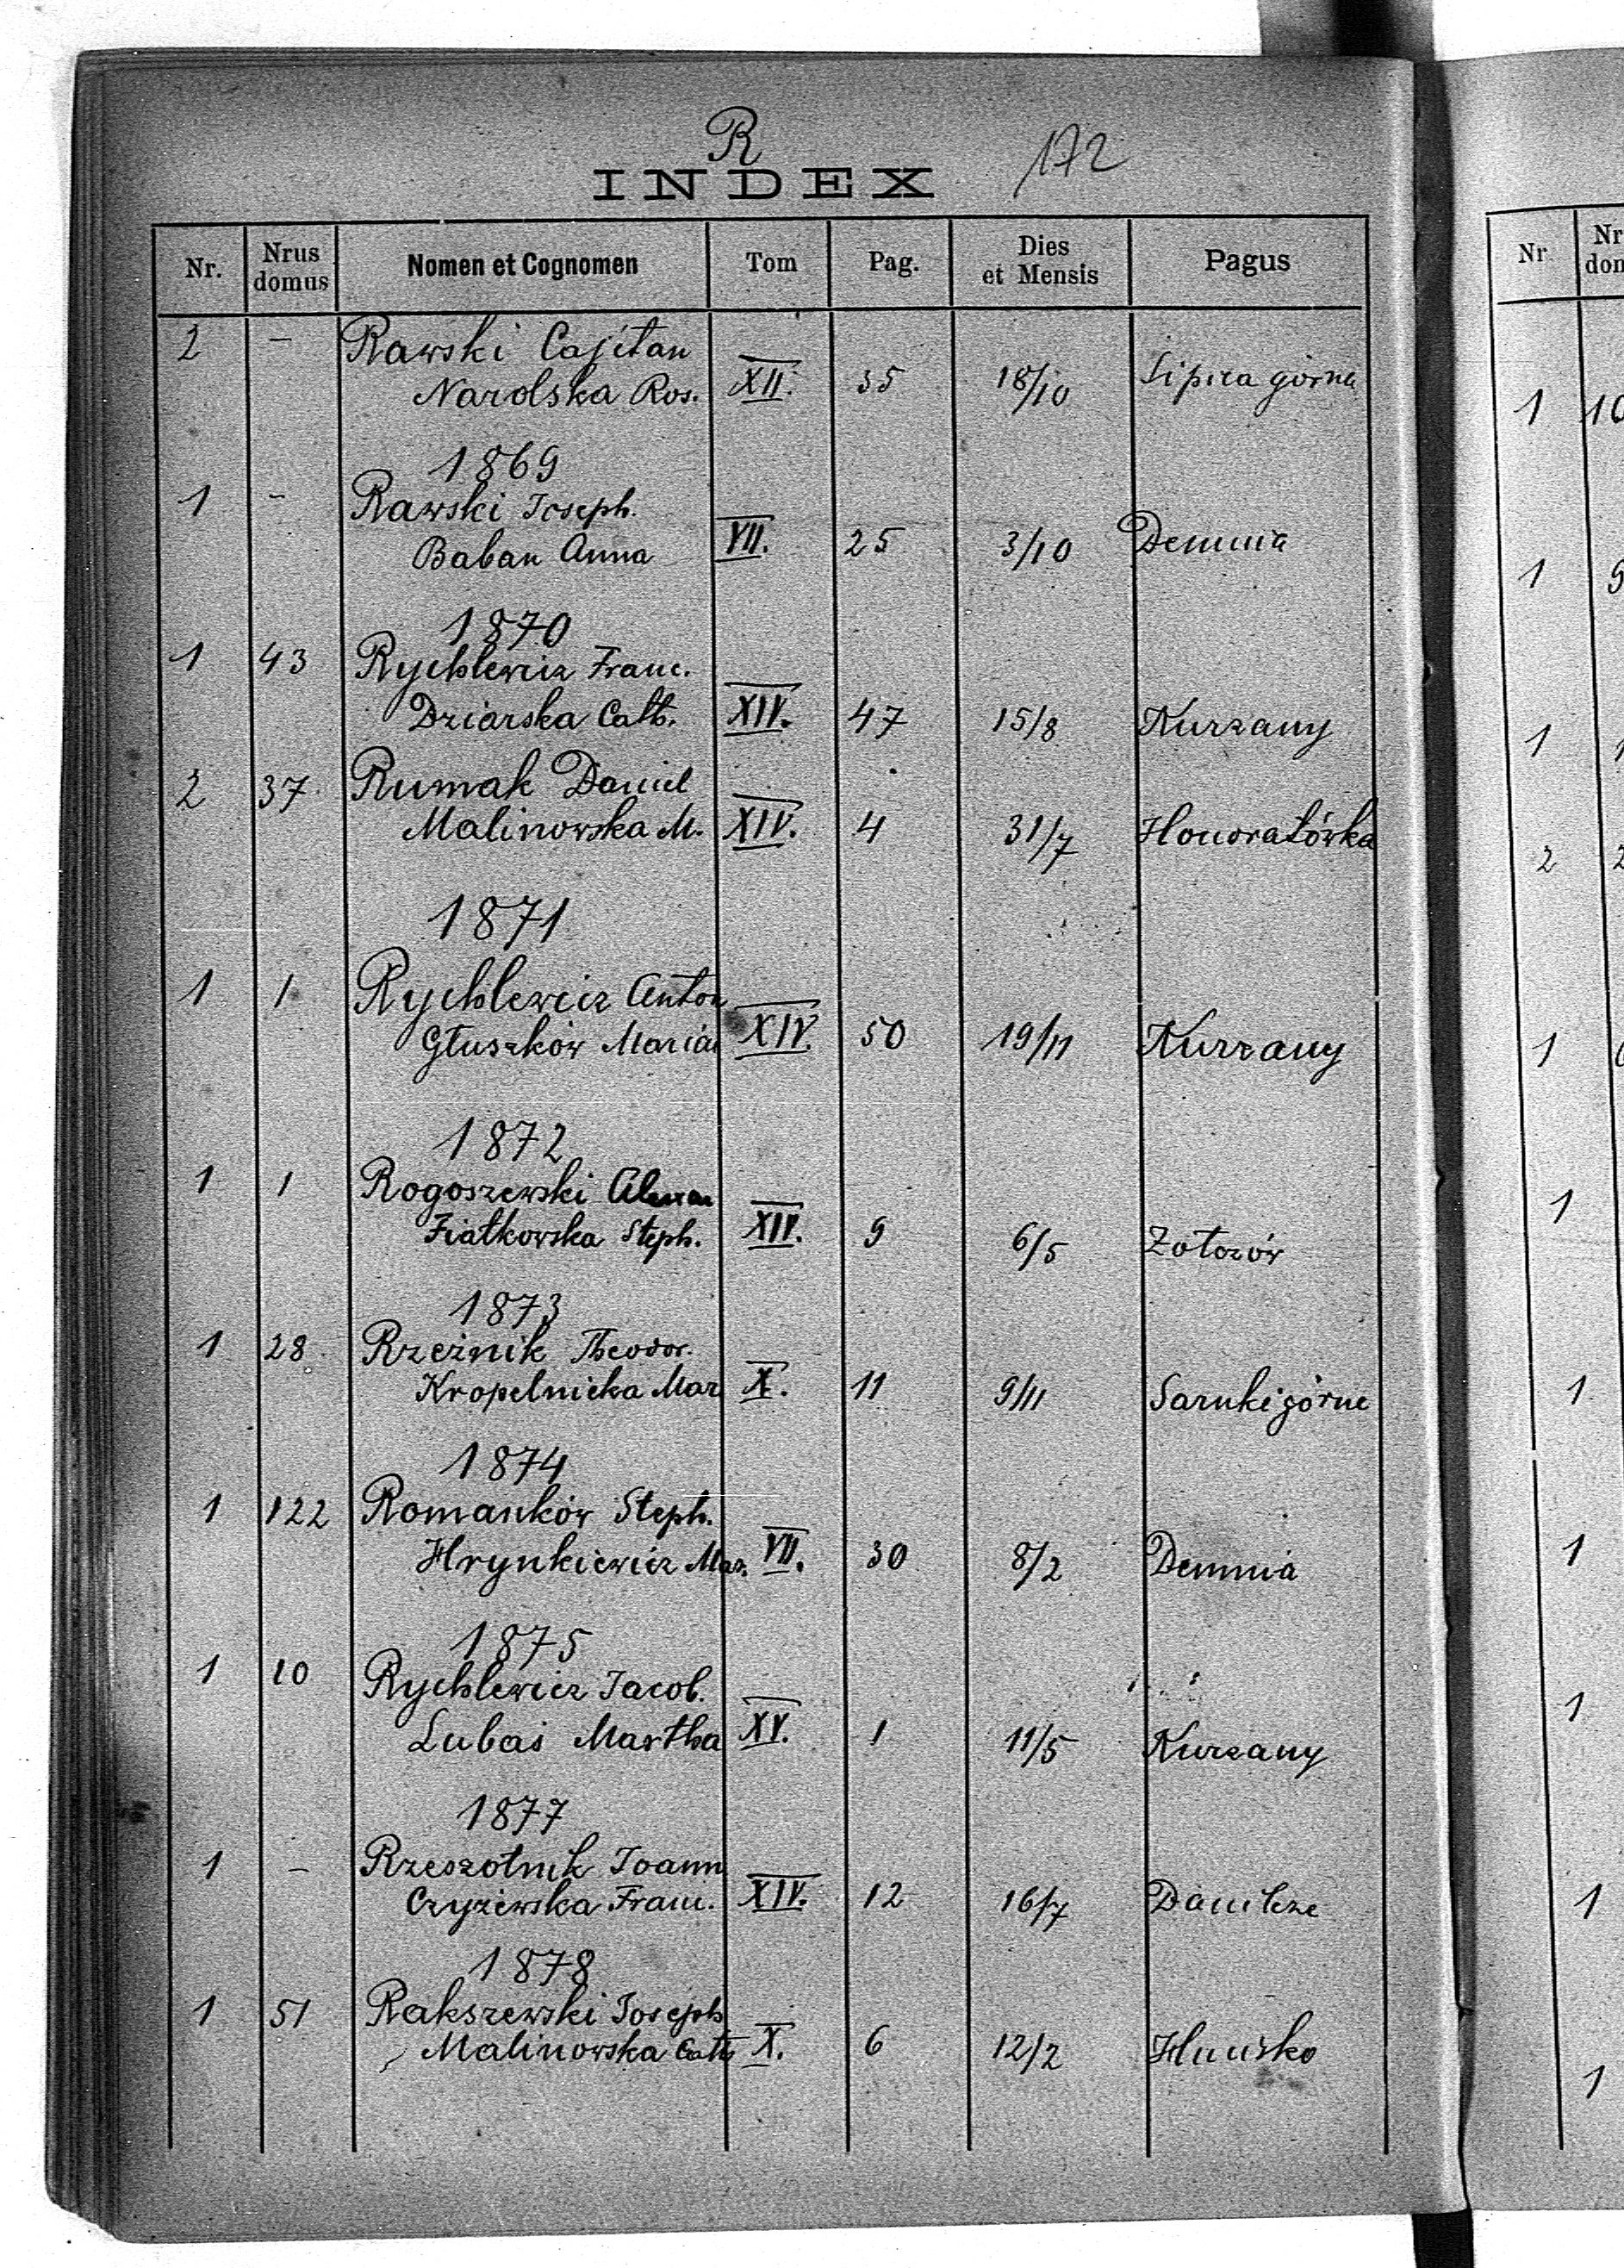 R
172
INDEX
Nr. Nrus domus Nomen et Cognomen Tom Pag. Dies et Mensis Pagus
2 – Rawski Cajetan
Narolska Ros. XII. 35 18/10 Lipica górna
1869
1 – Rawski Joseph.
Baban Anna VII. 25 3/10 Demnia
1870
1 43 Rychlewicz Franc.
Dziarska Cath. XIV. 47 15/8 Kurzany
2 37 Rumak Daniel
Malinowska M. XIV. 4 31/7 Honoratówka
1871
1 1 Rychlewicz Anton
Głuszków Maria XIV. 50 19/11 Kurzany
1872
1 1 Rogoszewski
Fiałkowska Steph. XIV. 9 6/5 Zotozów
1873
1 28 Rzeźnik Theodor.
Kropelnicka Mar X. 11 9/11 Sarnki górne
1874
1 122 Romanków Steph.
Hrynkiewicz Mar. VII. 30 8/2 Demnia
1875
1 10 Rychlewicz Jacob.
Lubaś Martha XV. 1 11/5 Kurzany
1877
1 – Rzeszotnik Joann
Czyżewska Franc. XIV. 12 16/7 Danilcze
1878
1 51 Rakszewski Joseph
Malinowska Cath X. 6 12/2 Hucisko
Nr Nr
don
1 10
1 9
1 1
2 2
1
1
1
1
1
1
1